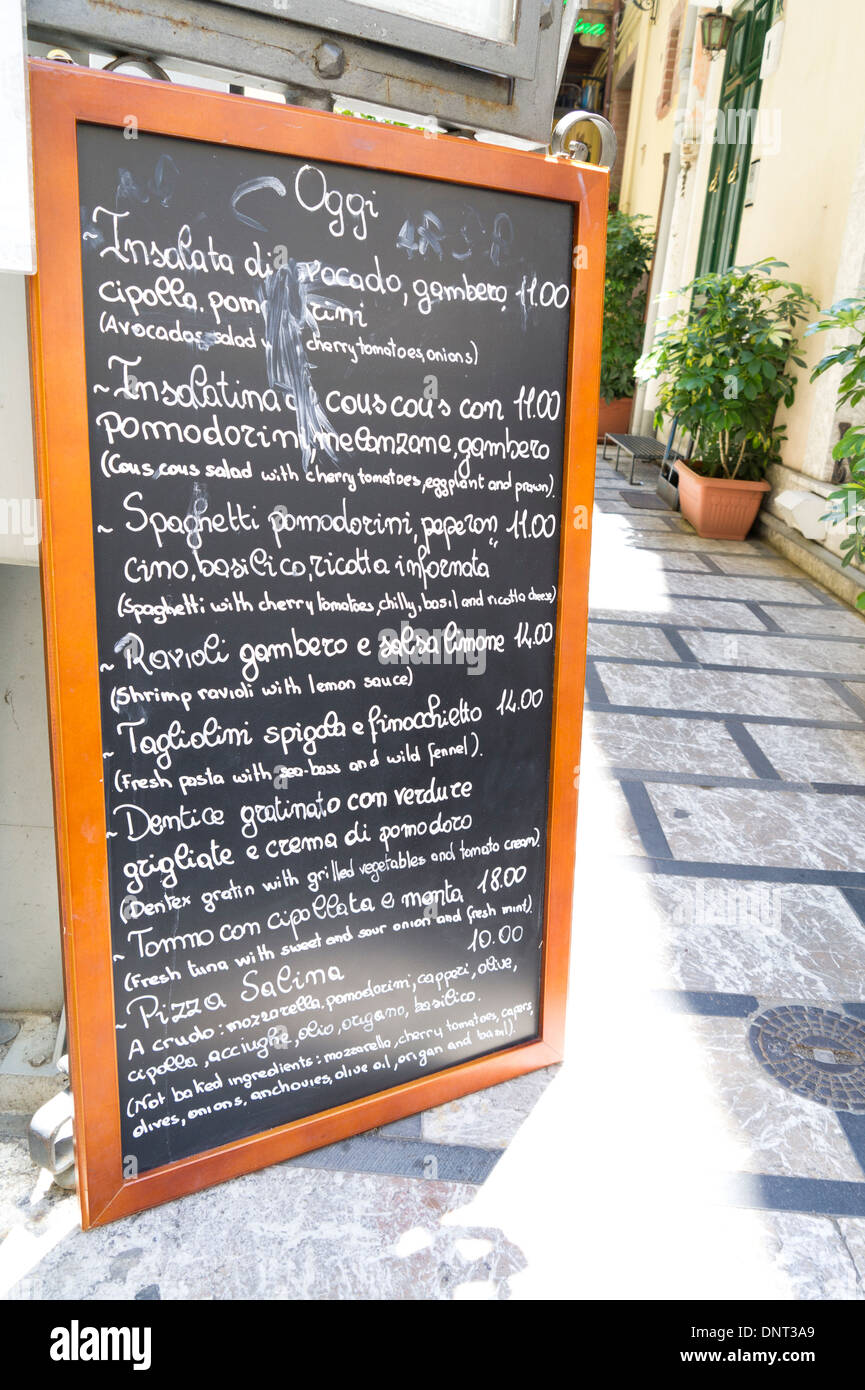 Oggi
~ Insalata di avocado, gambero, 11.00
cipolla, pomodorini
(Avocados salad cherry tomatoes, onions)
~ Insalatina di cous cous con 11.00
pomodorini, melanzane, gambero
(Cous cous salad with cherry tomatoes, eggplant and prawn).
~ Spaghetti pomodorini, peperon 11.00
cino, basilico, ricotta infornata
(Spaghetti with cherry tomatoes, chilly, basil and ricotta cheese)
~ Ravioli gambero e salsa limone 14.00
(Shrimp ravioli with lemon sauce)
~ Tagliolini spigola e finocchietto 14.00
(Fresh pasta with sea-bass and wild fennel).
~ Dentice gratinato con verdure
grigliate e crema di pomodoro
(Dentex gratin with grilled vegetables and tomato cream).
~ Tonno con cipollata e menta 18.00
(Fresh tuna with sweet and sour onion and fresh mint).
~ Pizza Salina 10.00
A crudo: mozzarella, pomodorini, capperi, olive,
cipolla, acciughe, olio, origano, basilico.
(Not baked ingredients: mozzarella, cherry tomatoes, capers,
olives, onions, anchovies, olive oil, origan and basil).
alamy
alamy stock photo
Image ID: DNT3A9
www.alamy.com